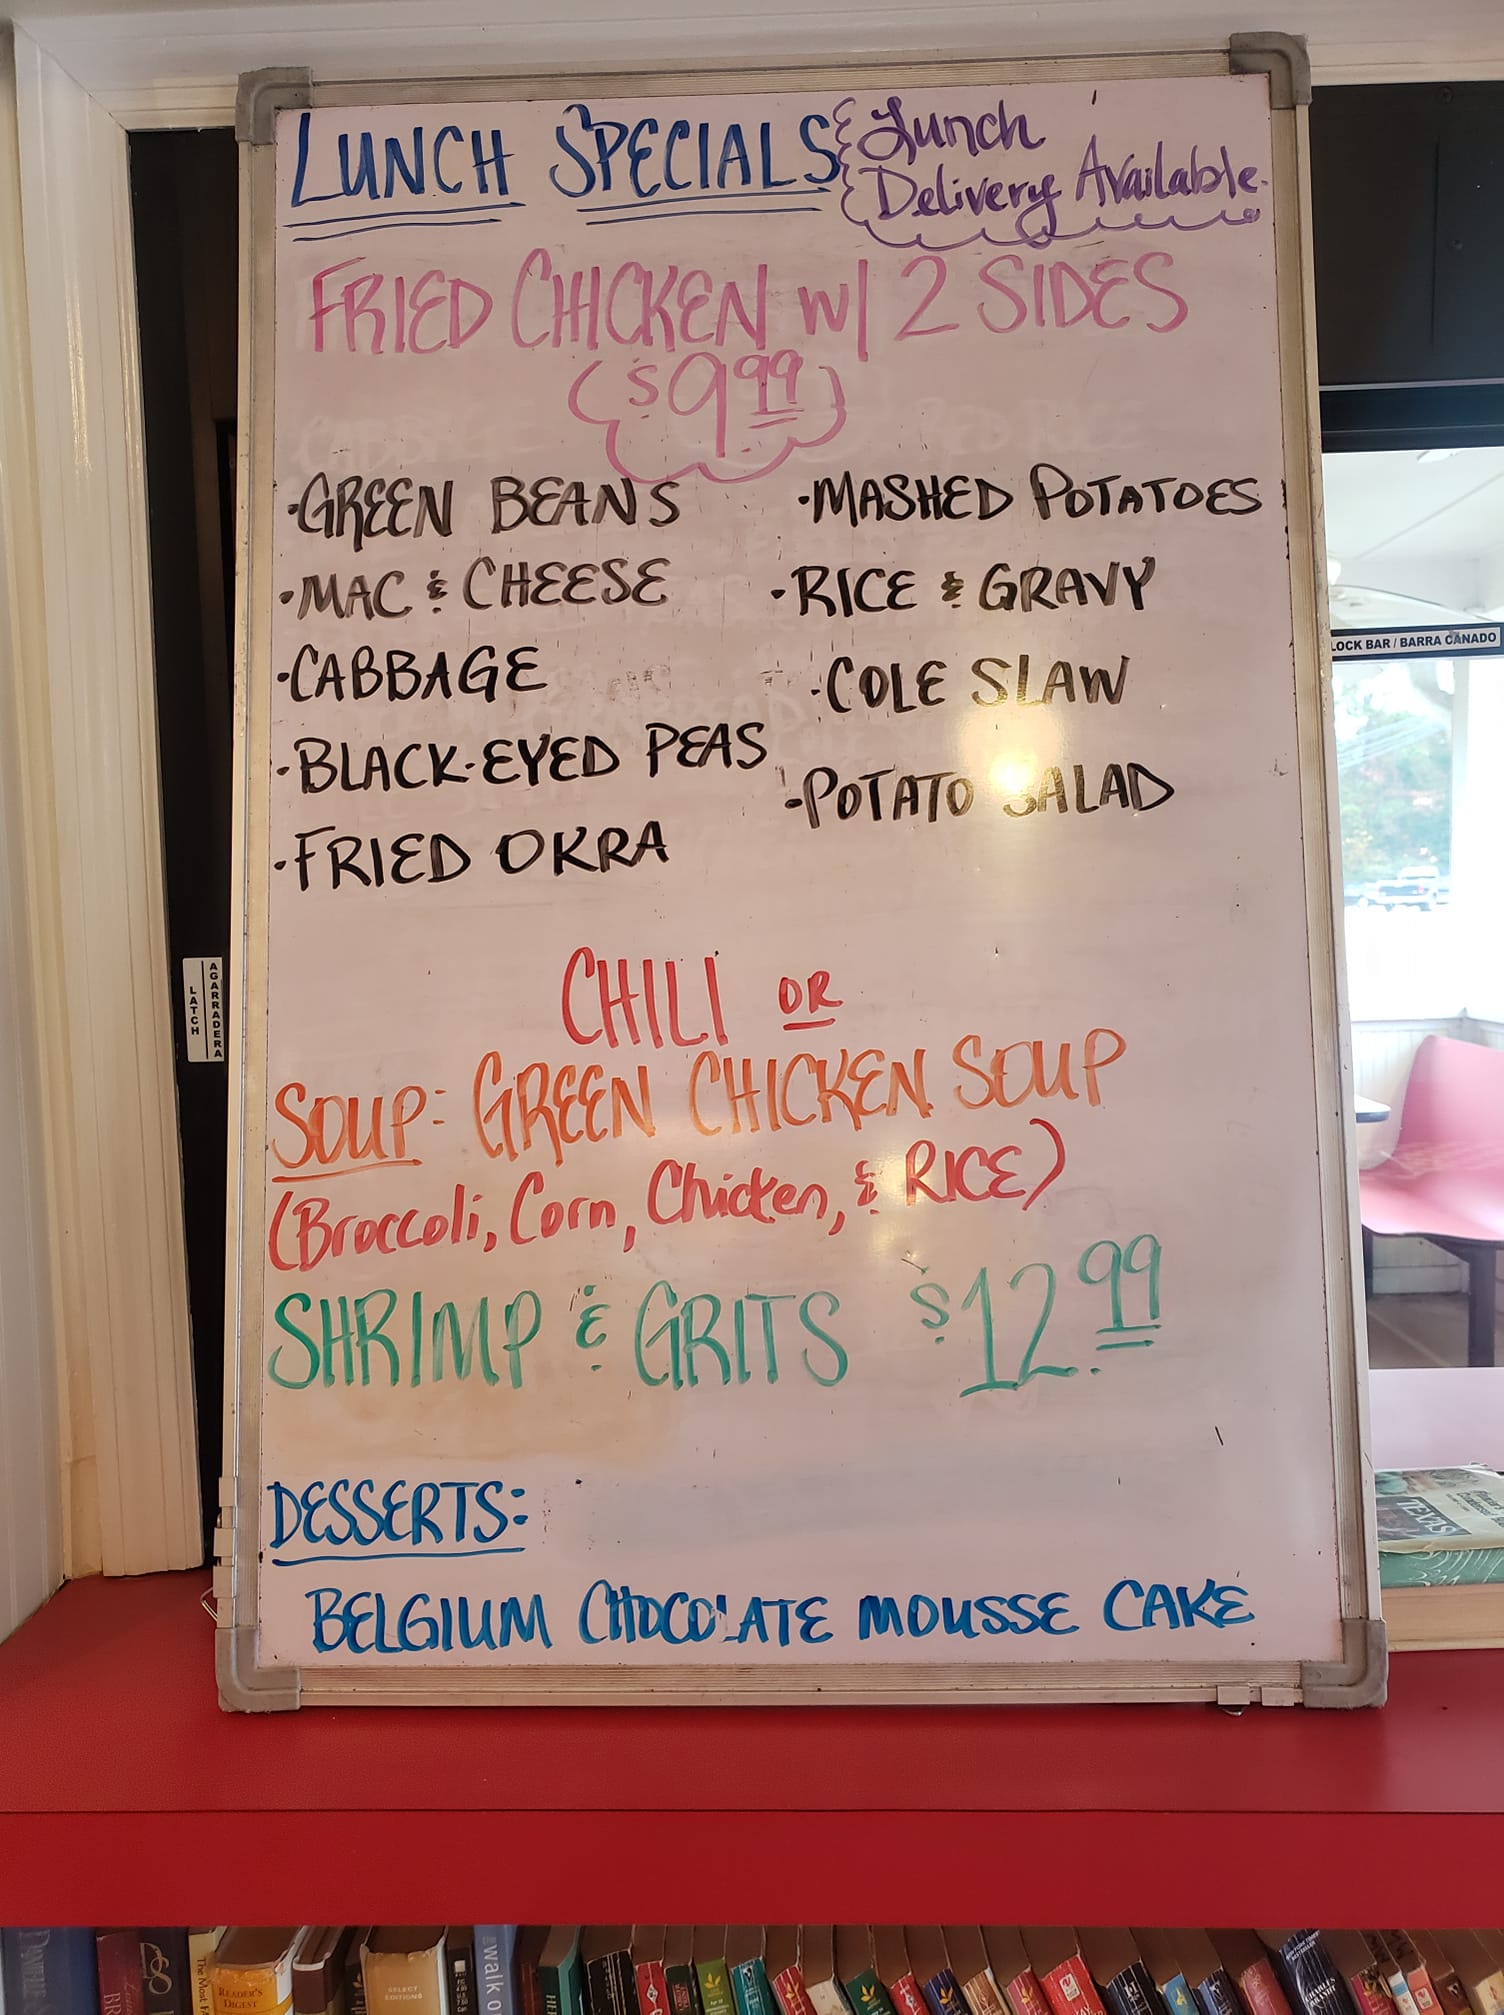 LUNCH SPECIALS
Lunch
Delivery Available.
FRIED CHICKEN w/ 2 SIDES
($9.99)
·GREEN BEANS
·MAC & CHEESE
·CABBAGE
·BLACK-EYED PEAS
·FRIED OKRA
·MASHED POTATOES
·RICE & GRAVY
·COLE SLAW
·POTATO SALAD
CHILI OR
SOUP: GREEN CHICKEN SOUP
(Broccoli, Corn, Chicken, & RICE)
SHRIMP & GRITS $12.99
DESSERTS:
BELGIUM CHOCOLATE MOUSSE CAKE
LOCK BAR / BARRA CANADO
LATCH
AGARRADERA
TEXAS
READER'S
DIGEST
SELECT
EDITIONS
walk